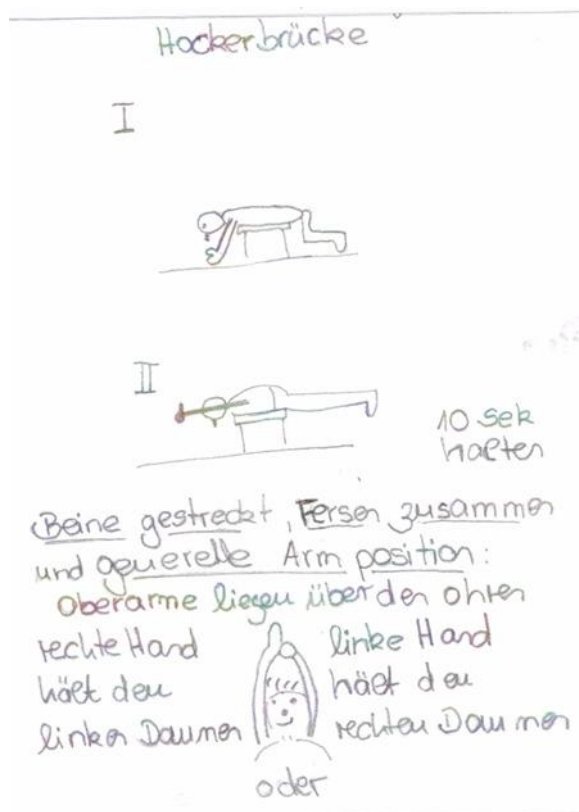 Hockerbrücke
I
II
10 sek
halten
Beine gestreckt, Fersen zusammen
und generelle Arm position:
Oberarme liegen über den ohren
rechte Hand
hält den
linken Daumen
linke Hand
hält den
rechten Daumen
oder